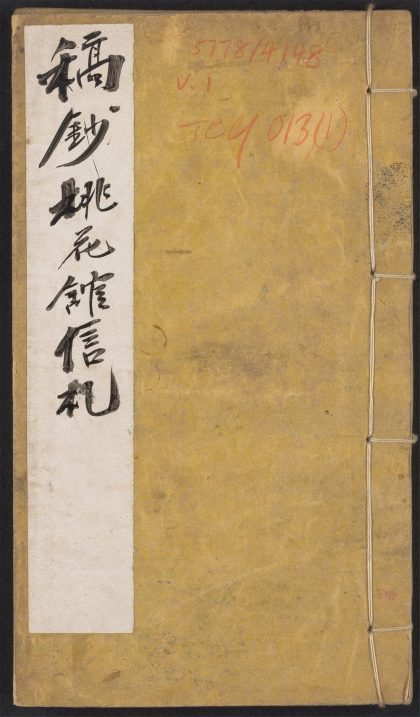 稿鈔桃花館信札
5778/4148
v.1
013(1)